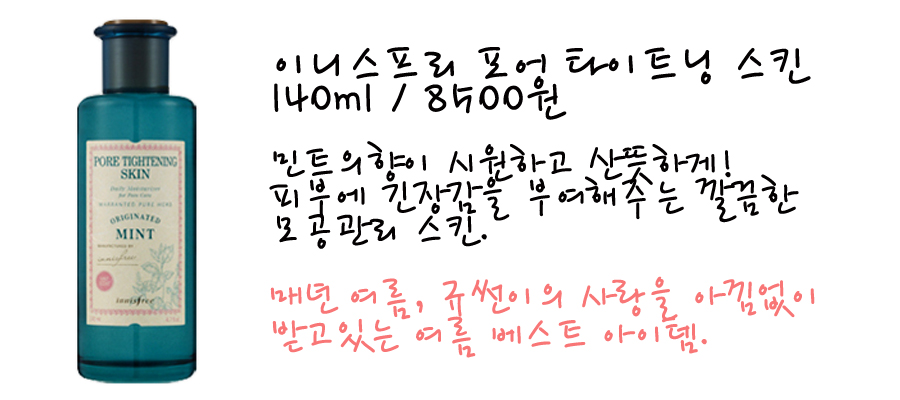 이니스프리 포어 타이트닝 스킨
140ml / 8500원
민트의향이 시원하고 산뜻하게!
피부에 긴장감을 부여해주는 깔끔한
모공관리 스킨.
매년 여름, 규썬이의 사랑을 아낌없이
받고있는 여름 베스트 아이템.
PORE TIGHTENING
SKIN
Daily Moisturizer
for Pore Care
WARRANTED PURE HERB
ORIGINATED
MINT
MANUFACTURED BY
innisfree
innisfree